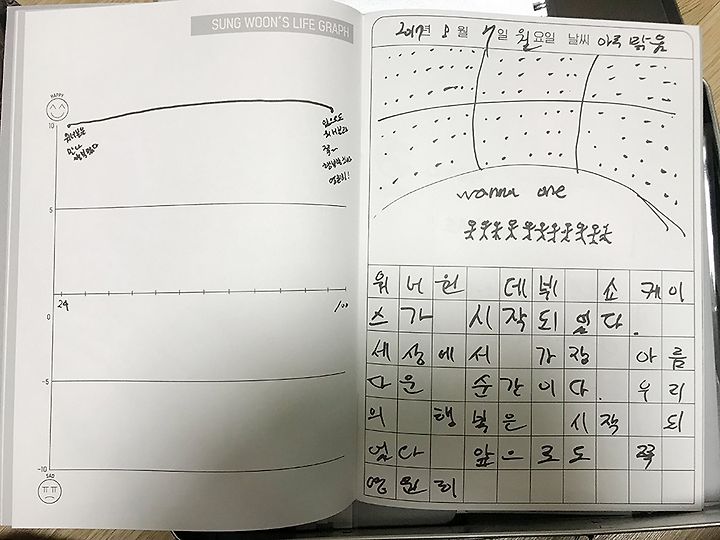 SUNG WOON'S LIFE GRAPH
HAPPY
10
만나
행복했다
앞으로도
쭉~
영원히!
5
24
100
0
-5
-10
SAD
2017년 8월 7일 월요일 날씨 아주 맑음
wanna one
워너원 데뷔 쇼케이
스가 시작되었다.
세상에서 가장 아름
다운 순간이다. 우리
의 행복은 시작되
었다 앞으로도 쭉
영원히